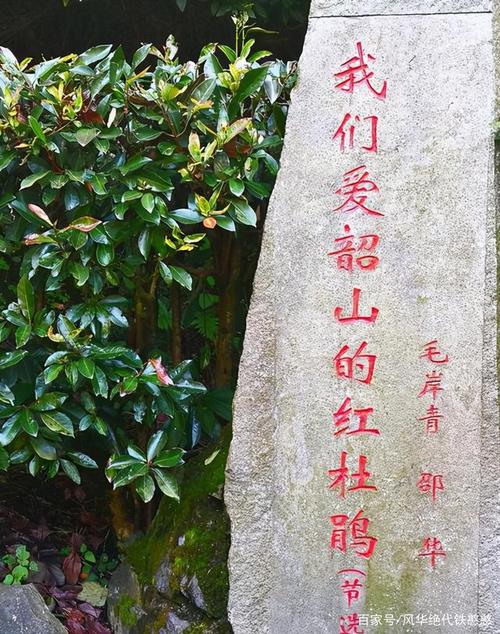 我们爱韶山的红杜鹃（节选
毛岸青 邵华
百家号/风华绝代铁憨憨